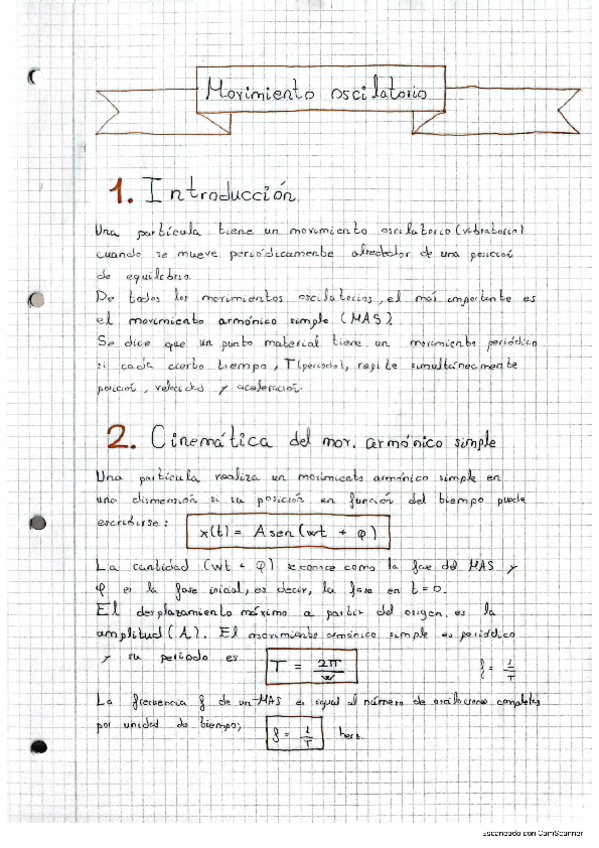 Movimiento oscilatorio
1. Introducción
Una partícula tiene un movimiento oscilatorio (vibratorio)
cuando se mueve periódicamente alrededor de una posición
de equilibrio.
De todos los movimientos oscilatorios, el más importante es
el movimiento armónico simple (MAS).
Se dice que un punto material tiene un movimiento periódico
si cada cierto tiempo, T (periodo), repite simultáneamente
posición, velocidad y aceleración.
2. Cinemática del mor. armónico simple
Una partícula realiza un movimiento armónico simple en
una dismensión si su posición en función del tiempo puede
escribirse: x(t) = A sen (wt + φ)
La cantidad (wt + φ) se conoce como la fase del MAS y
φ es la fase inicial, es decir, la fase en t = 0.
El desplazamiento máximo a partir del origen es la
amplitud (A). El movimiento armónico simple es periódico
y su periodo es T = 2π/w f = 1/T
La frecuencia f de un MAS es igual al número de oscilaciones completas
por unidad de tiempo; f = 1/T herz.
Escaneado con CamScanner